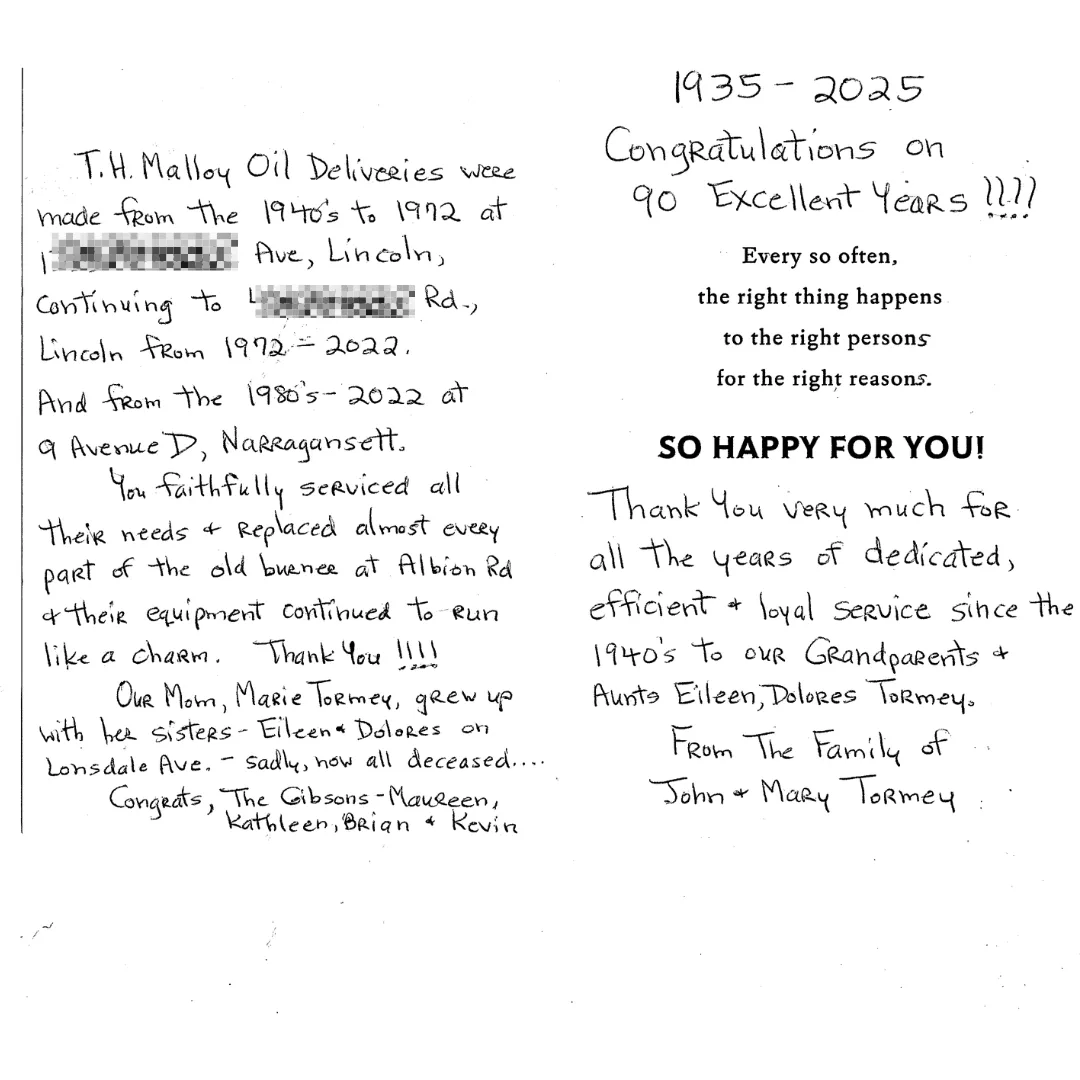 T.H. Malloy Oil Deliveries were
made from the 1940's to 1972 at
Ave, Lincoln,
continuing to Rd.,
Lincoln from 1972 - 2022.
And from the 1980's - 2022 at
9 Avenue D, Narragansett.
You faithfully serviced all
their needs + replaced almost every
part of the old burner at Albion Rd
+ their equipment continued to run
like a charm. Thank You !!!!
Our Mom, Marie Tormey, grew up
with her sisters - Eileen + Dolores on
Lonsdale Ave. - sadly, now all deceased....
Congrats, The Gibsons - Maureen,
Kathleen, Brian + Kevin
1935 - 2025
Congratulations on
90 Excellent Years !!!!
Every so often,
the right thing happens
to the right persons
for the right reasons.
SO HAPPY FOR YOU!
Thank You very much for
all the years of dedicated,
efficient + loyal service since the
1940's to our Grandparents +
Aunts Eileen, Dolores Tormey.
From The Family of
John + Mary Tormey